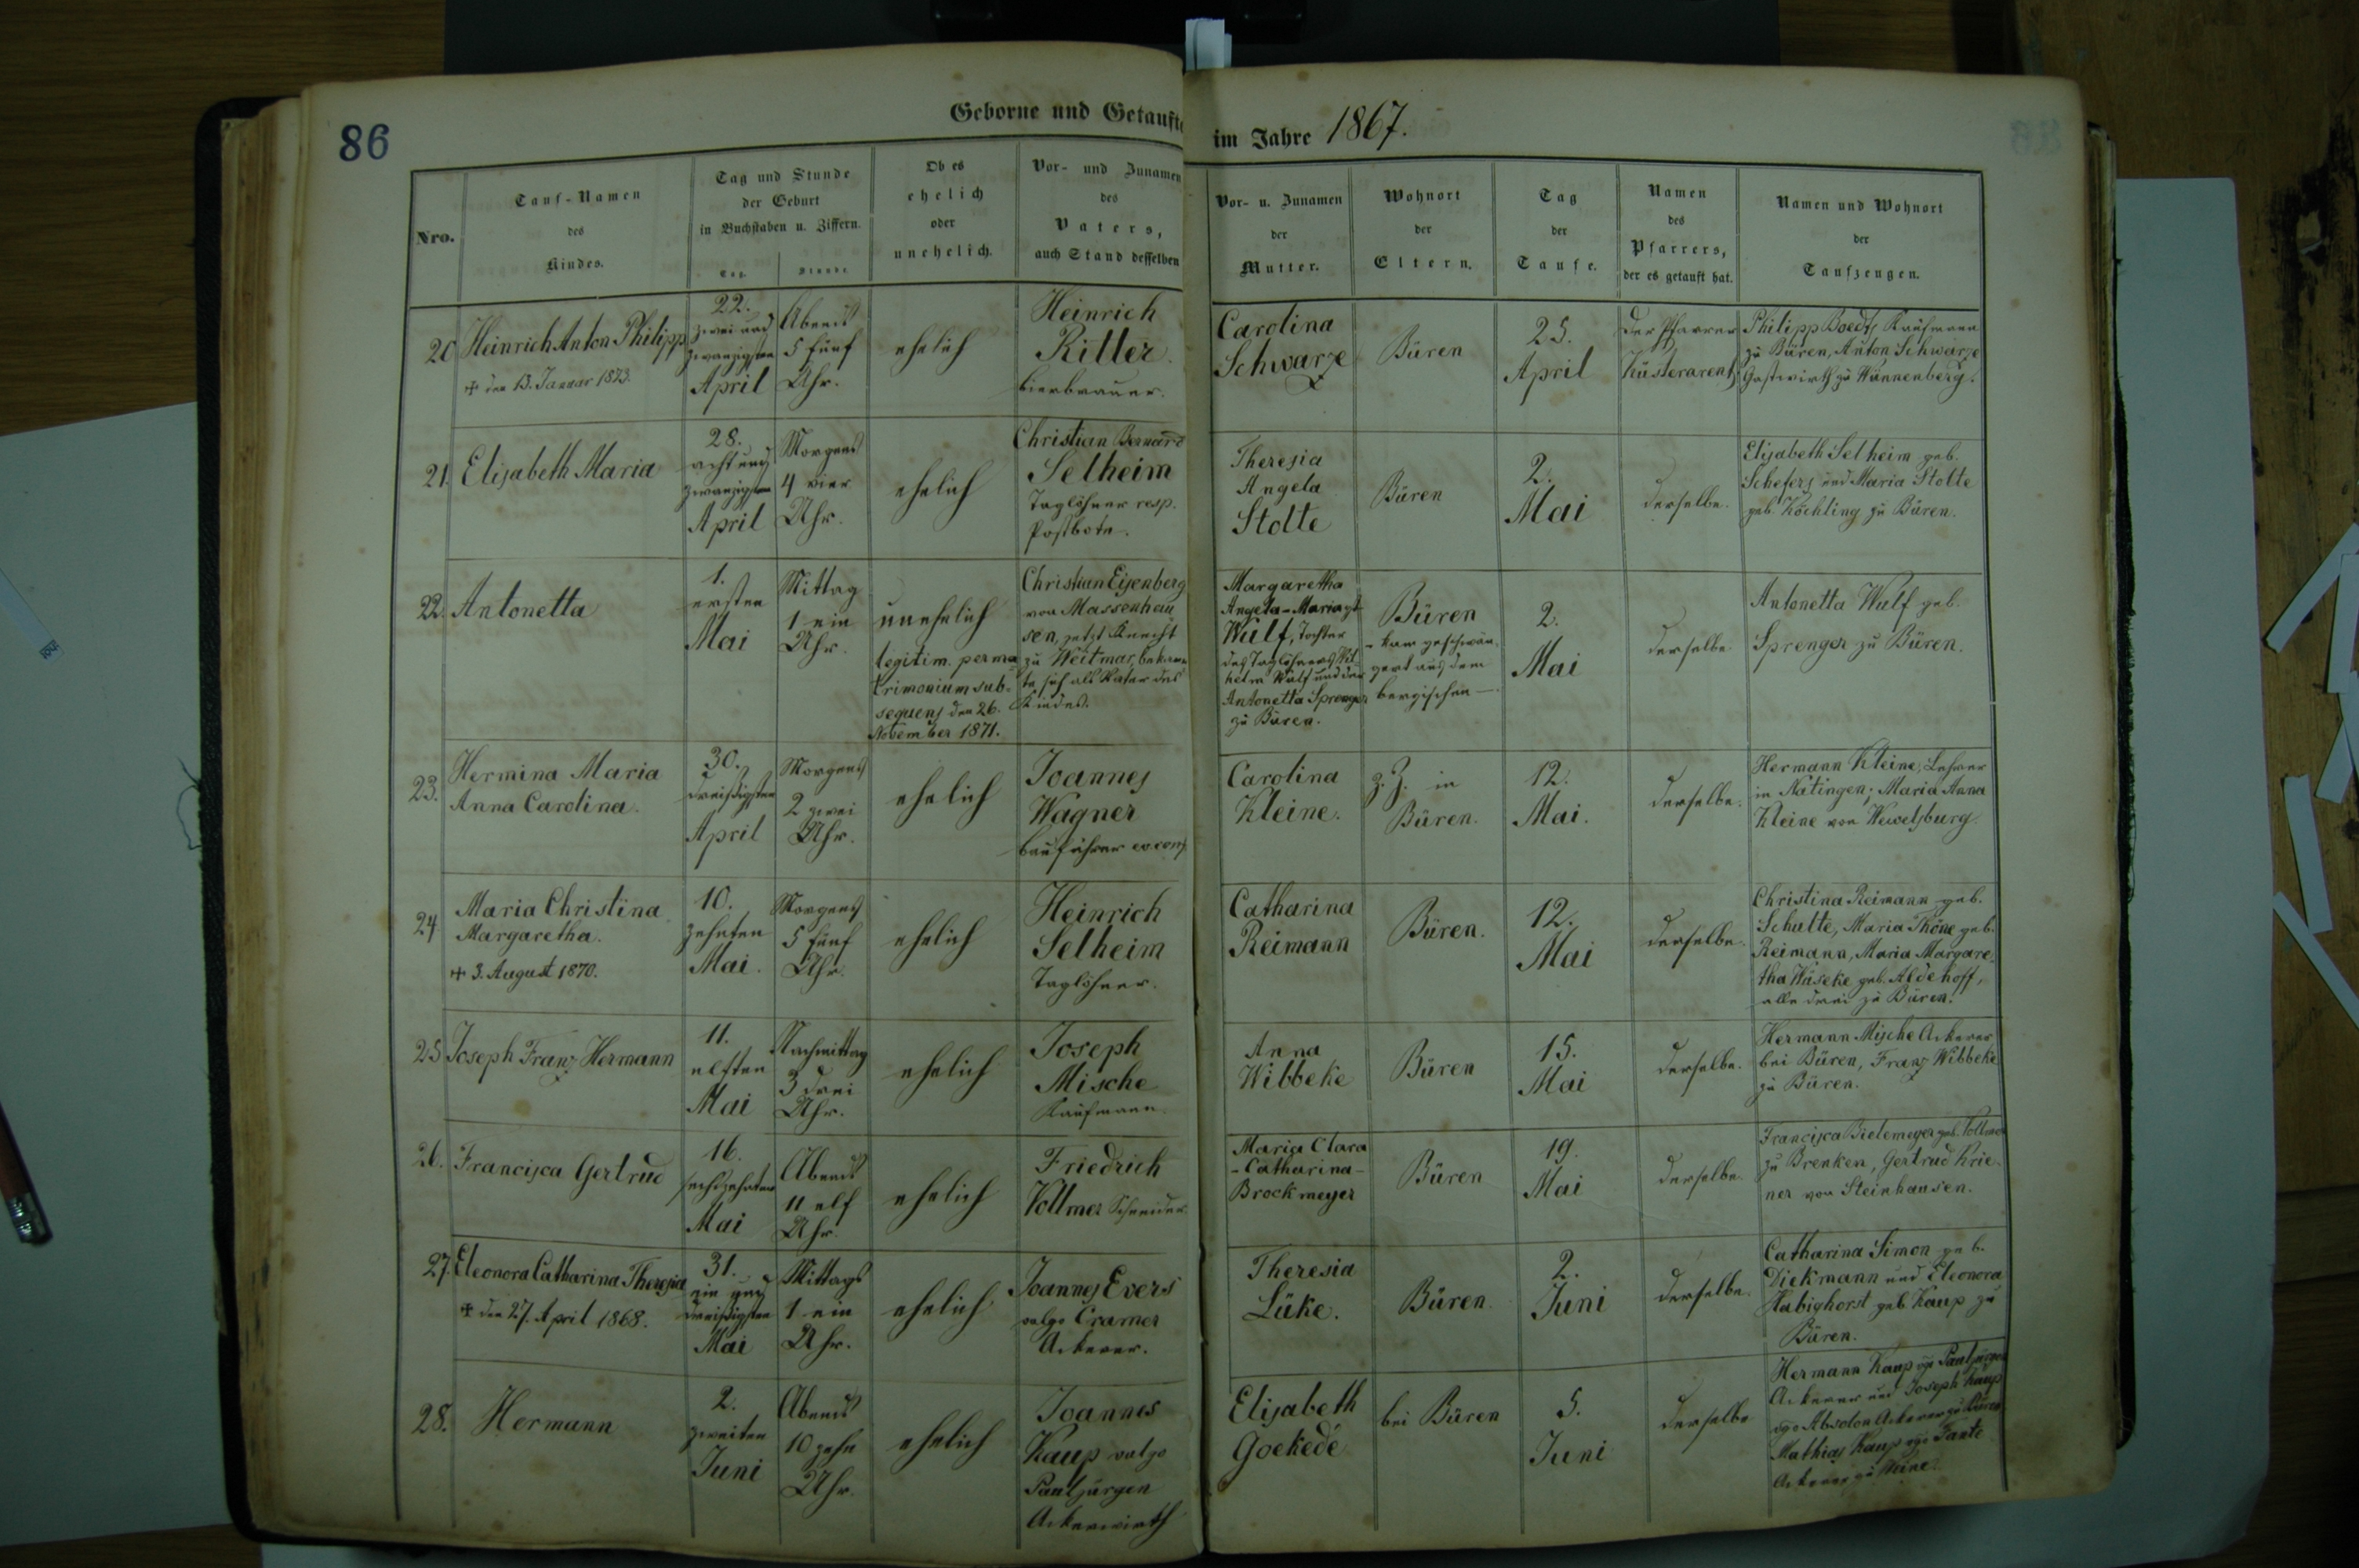 86
Geborne und Getaufte
im Jahre 1867.
Nro.
Tauf-Namen
des
Kindes.
Tag und Stunde
der Geburt
in Buchstaben u. Ziffern.
Tag.
Stunde.
Ob es
ehelich
oder
unehelich.
Vor- und Zunamen
des
Vaters,
auch Stand desselben
Vor- u. Zunamen
der
Mutter.
Wohnort
der
Eltern.
Tag
der
Taufe.
Namen
des
Pfarrers,
der es getauft hat.
Namen und Wohnort
der
Taufzeugen.
20
Heinrich Anton Philipp
+ den 13. Januar 1873.
22.
zwei und
zwanzigsten
April
Abends
5 fünf
Uhr.
ehelich
Heinrich
Ritter.
Bierbrauer.
Carolina
Schwarze
Büren
25.
April
Der Pfarrer
Küsterarent
Philipp Boedts Kaufmann
zu Büren, Anton Schwarze
Gastwirth zu Wünnenberg.
21.
Elisabeth Maria
28.
acht und
zwanzigsten
April
Morgens
4 vier
Uhr.
ehelich
Christian Bernard
Selheim
Taglöhner resp.
Postbote.
Theresia
Angela
Stolte
Büren
2.
Mai
derselbe.
Elisabeth Selheim geb.
Schefers und Maria Stolte
geb. Köchling zu Büren.
22.
Antonetta
1.
ersten
Mai
Mittag
1 ein
Uhr.
unehelich
legitim. per ma
trimonium sub-
sequens den 26.
November 1871.
Christian Eisenberg
von Massenhau
sen, jetzt Knecht
zu Weitmar, bekann
te sich als Vater des
Kindes.
Margaretha
Angela-Maria gt
Wulf, Tochter
des Taglöhners Wil
helm Wulf und der
Antonetta Sprenger
zu Büren.
Büren
- kam geschwän
gert aus dem
bergischen -
2.
Mai
derselbe.
Antonetta Wulf geb.
Sprenger zu Büren.
23.
Hermina Maria
Anna Carolina.
30.
dreißigsten
April
Morgens
2 zwei
Uhr.
ehelich
Joannes
Wagner
Bauführer ev. conf.
Carolina
Kleine.
z. Z. in
Büren.
12.
Mai.
derselbe.
Hermann Kleine, Lehrer
in Natingen; Maria Anna
Kleine von Wewelsburg.
24
Maria Christina
Margaretha.
+ 3. August 1870.
10.
zehnten
Mai.
Morgens
5 fünf
Uhr.
ehelich
Heinrich
Selheim
Taglöhner.
Catharina
Reimann
Büren.
12.
Mai
derselbe.
Christina Reimann geb.
Schulte, Maria Thöne geb.
Reimann, Maria Margare-
tha Wäseke geb. Aldehoff,
alle drei zu Büren.
25
Joseph Franz Hermann
11.
elften
Mai
Nachmittag
3 drei
Uhr.
ehelich
Joseph
Mische
Kaufmann.
Anna
Wibbeke
Büren
15.
Mai
derselbe.
Hermann Mische Ackerer
bei Büren, Franz Wibbeke
zu Büren.
26.
Francisca Gertrud
16.
sechszehnten
Mai
Abends
11 elf
Uhr.
ehelich
Friedrich
Vollmer Schneider.
Maria Clara
- Catharina -
Brockmeyer
Büren
19.
Mai
derselbe.
Francisca Bielemeyer geb. Vollmer
zu Brenken, Gertrud Krie-
ner von Steinhausen.
27.
Eleonora Catharina Theresia
+ den 27. April 1868.
31.
ein und
dreißigsten
Mai
Mittags
1 ein
Uhr.
ehelich
Joannes Evers
vulgo Cramer
Ackerer.
Theresia
Lüke.
Büren.
2.
Juni
derselbe.
Catharina Simon geb.
Diekmann und Eleonora
Habighorst geb. Kaup zu
Büren.
28.
Hermann
2.
zweiten
Juni
Abends
10 zehn
Uhr.
ehelich
Joannes
Kaup vulgo
Pauljürgen
Ackerwirth
Elisabeth
Goekede
bei Büren
5.
Juni
derselbe
Hermann Kaup vgo Pauljürgen
Ackerer und Joseph Kaup
vgo Absolon Ackerer zu Büren
Mathias Kaup vgo Tante
Ackerer zu Weine.